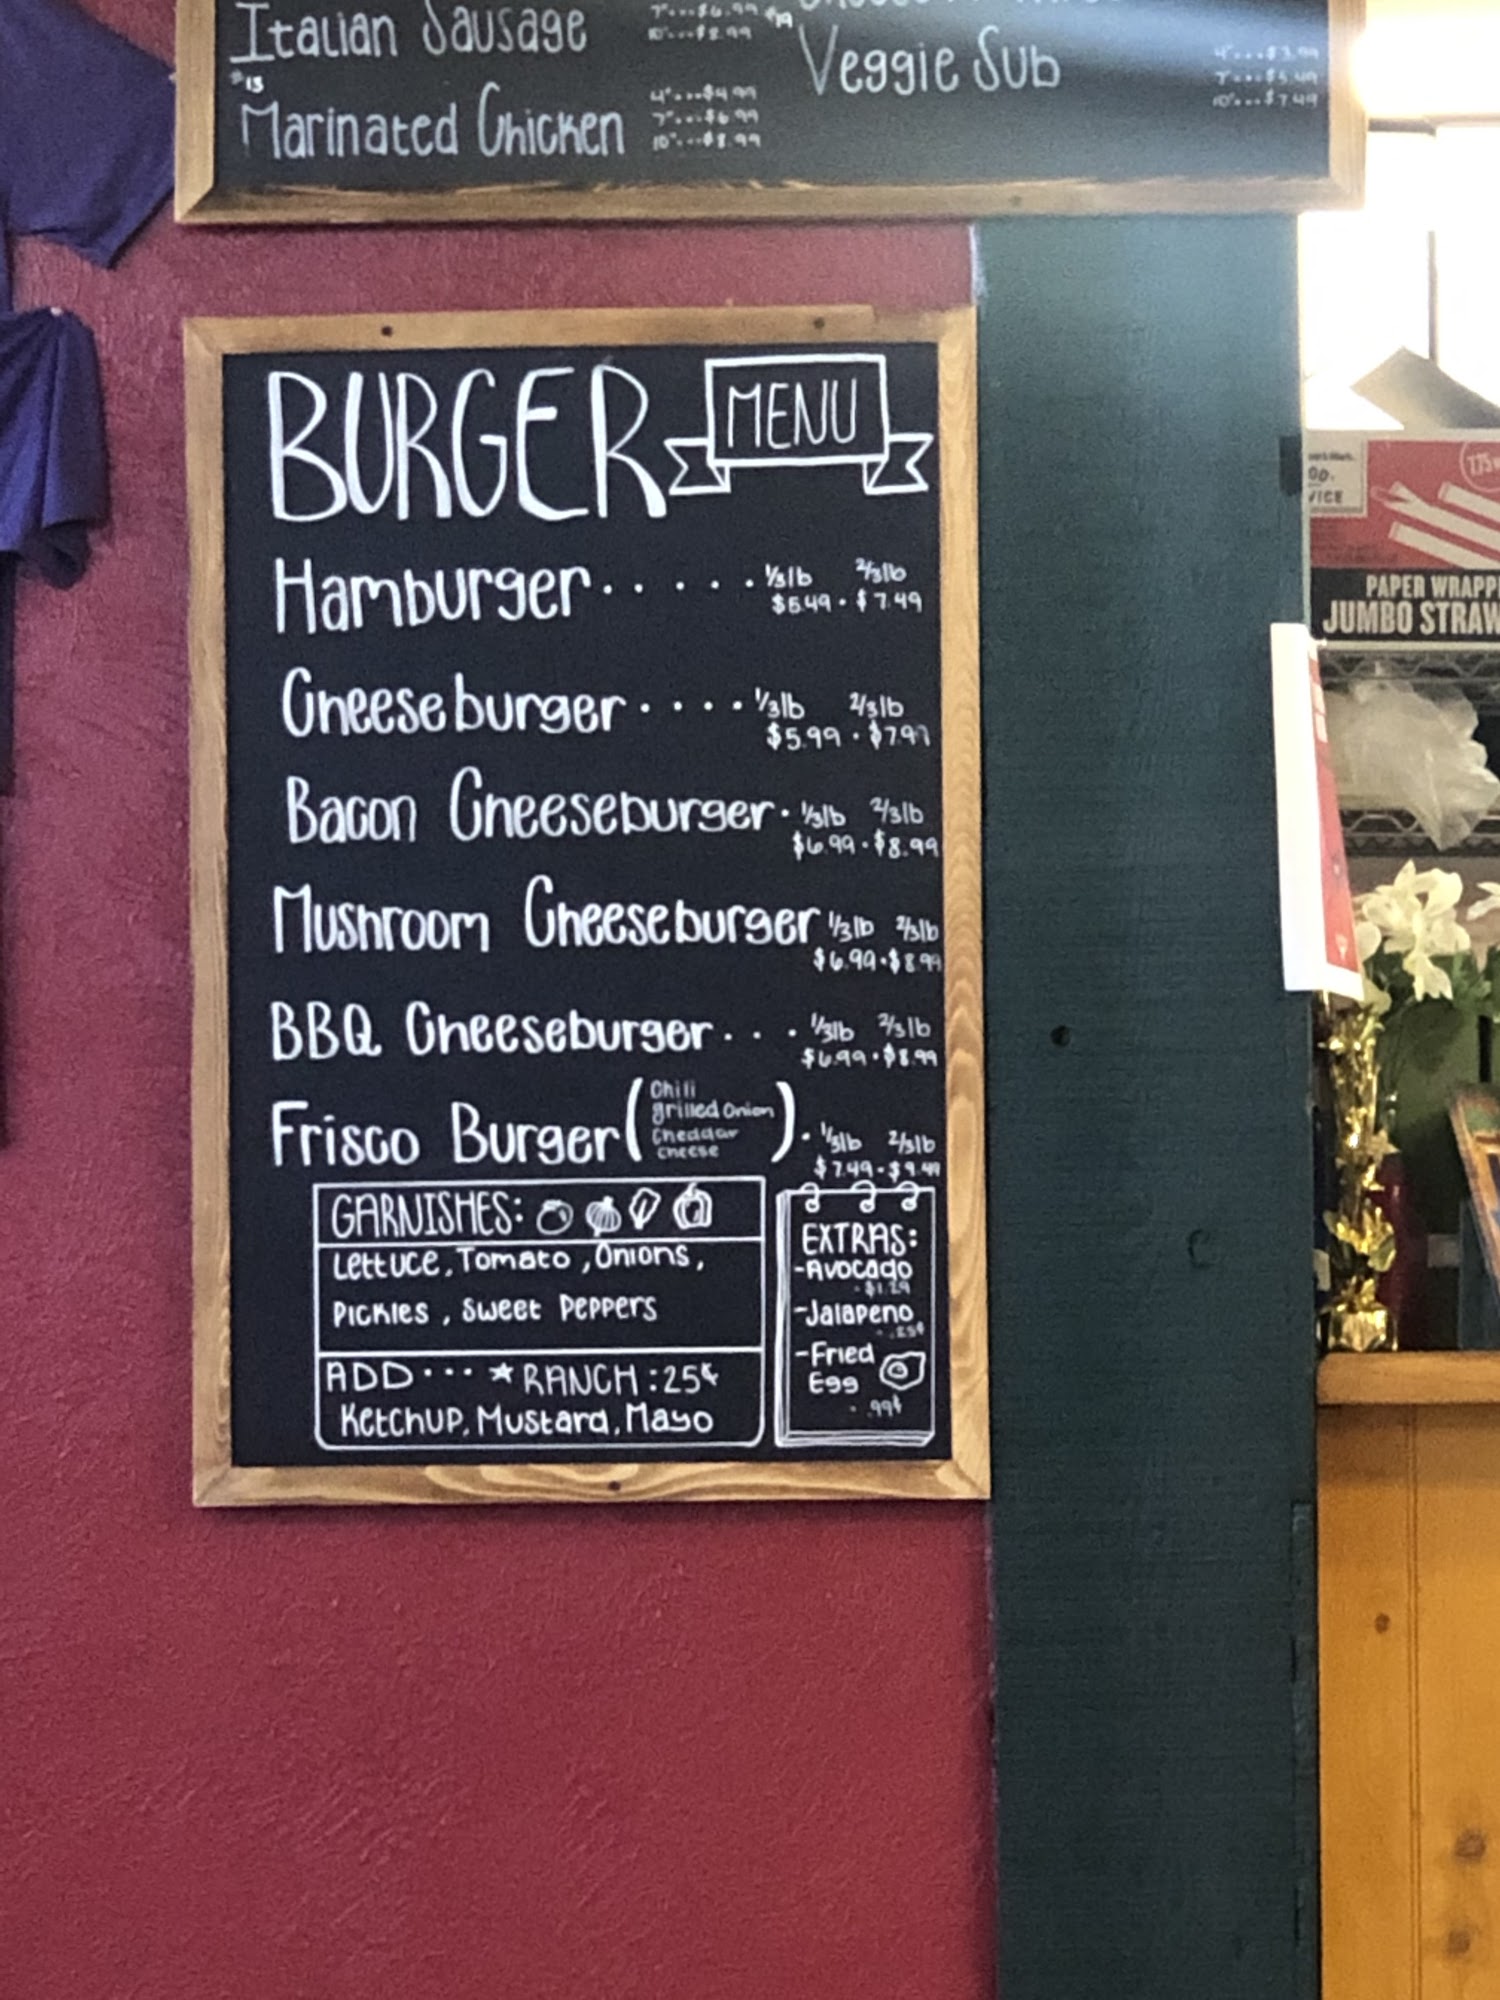 Italian Sausage
7"...$6.99
10"...$8.99
#13
Marinated Chicken
4"...$4.99
7"...$6.99
10"...$8.99
#19
Veggie Sub
4"...$3.99
7"...$5.49
10"...$7.49
BURGER MENU
Hamburger . . . . . 1/3lb 2/3lb
$5.49 . $7.49
Cheeseburger . . . . 1/3lb 2/3lb
$5.99 . $7.99
Bacon Cheeseburger . 1/3lb 2/3lb
$6.99 . $8.99
Mushroom Cheeseburger 1/3lb 2/3lb
$6.99 . $8.99
BBQ Cheeseburger . . . 1/3lb 2/3lb
$6.99 . $8.99
Frisco Burger (Chili
grilled Onion
Cheddar
cheese) . 1/3lb 2/3lb
$7.49 - $9.49
GARNISHES:
Lettuce, Tomato, Onions,
Pickles, Sweet Peppers
ADD... ★RANCH: 25¢
Ketchup, Mustard, Mayo
EXTRAS:
-Avocado
- $1.29
-Jalapeno
- .25¢
-Fried
Egg
- .99¢
VICE
PAPER WRAPP
JUMBO STRAW